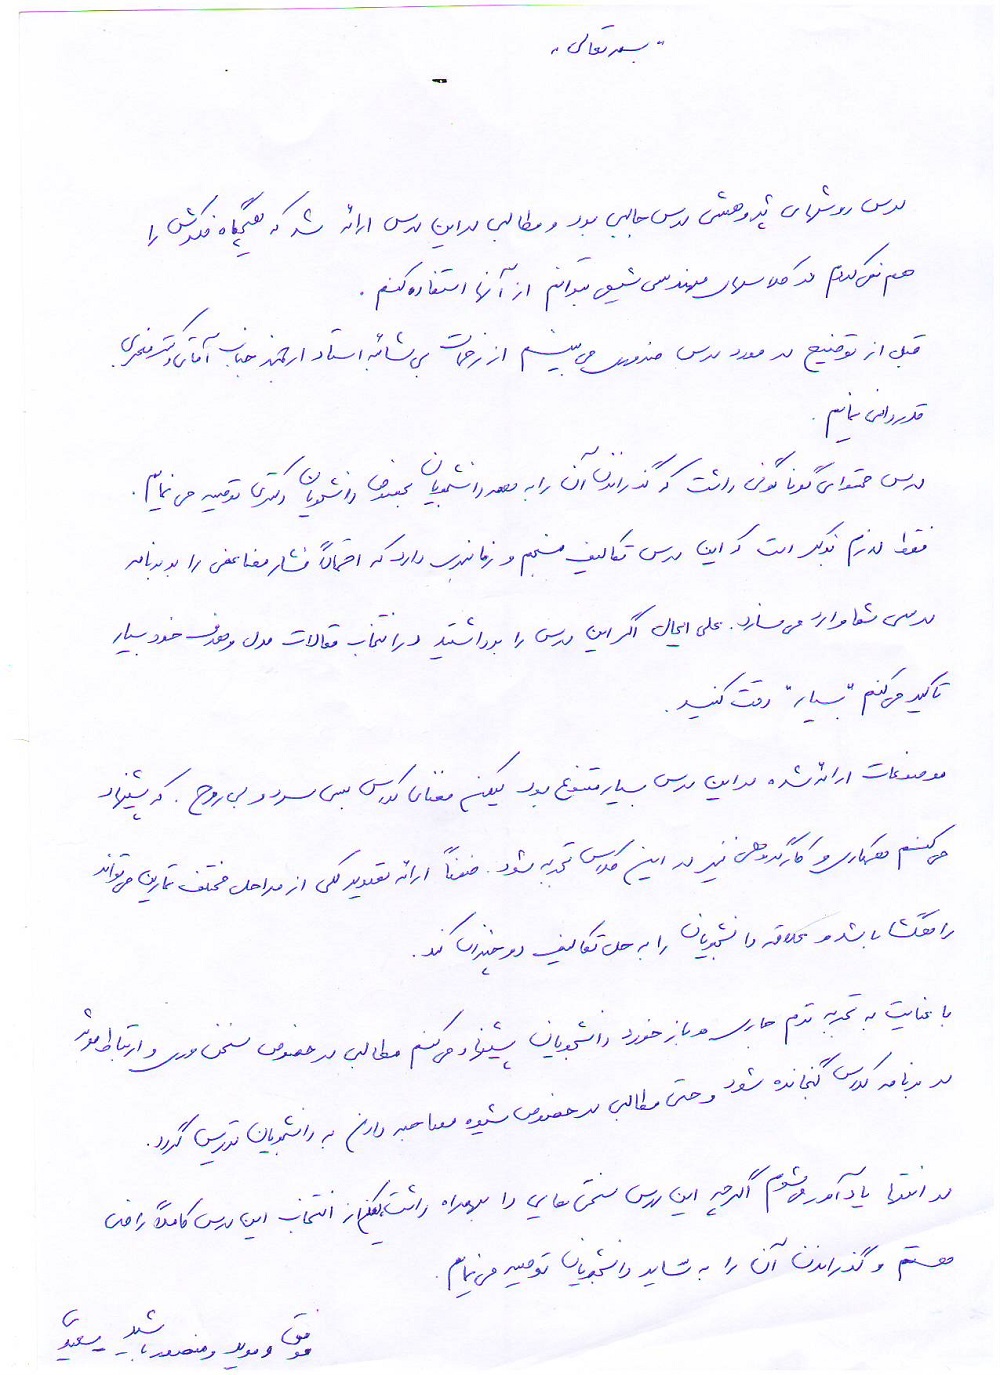 "بسمه تعالی"
درس روشهای پژوهشی درس جالبی بود و مطالبی در این درس ارائه شد که هیچگاه فکرش را
هم نمی‌کردم در کلاسهای مهندسی شیمی بتوانم از آنها استفاده کنم.
قبل از توضیح در مورد درس ضروری می‌بینم از زحمات بی‌شائبه استاد ارجمند جناب آقای دکتر
قدردانی نمایم.
درس محتوای گوناگونی داشت که گذراندن آن را به همه دانشجویان بخصوص دانشجویان دکتری توصیه می‌نمایم.
فقط لازم بذکر است که این درس تکالیف منسجم و زمانبری دارد که احتمالاً فشار مضاعفی را بر برنامه
درسی شما وارد می‌سازد. علی ایحال اگر این درس را برداشتید در انتخاب مقالات مدل و هدف خود بسیار
تاکید می‌کنم "بسیار" دقت کنید.
موضوعات ارائه شده در این درس بسیار متنوع بود لیکن فضای کلاس بس سرد و بی روح. که پیشنهاد
می‌کنم همکاری و کار گروهی نیز در این کلاس تجربه شود. ضمناً ارائه تقویم کلی از مراحل مختلف تمارین می‌تواند
راهگشا باشد و علاقه دانشجویان را به حل تکالیف دو چندان کند.
با عنایت به تجربه ترم جاری و بازخورد دانشجویان پیشنهاد می‌کنم مطالبی در خصوص سخن وری و ارتباط موثر
در برنامه کلاس گنجانده شود و حتی مطالبی در خصوص شیوه مصاحبه دادن به دانشجویان تدریس گردد.
در انتها یادآور می‌شوم اگرچه این درس سختی هایی را بهمراه داشت لیکن از انتخاب این درس کاملاً راضی
هستم و گذراندن آن را به سایر دانشجویان توصیه می‌نمایم.
موفق و موید و منصور باشید سعیدی